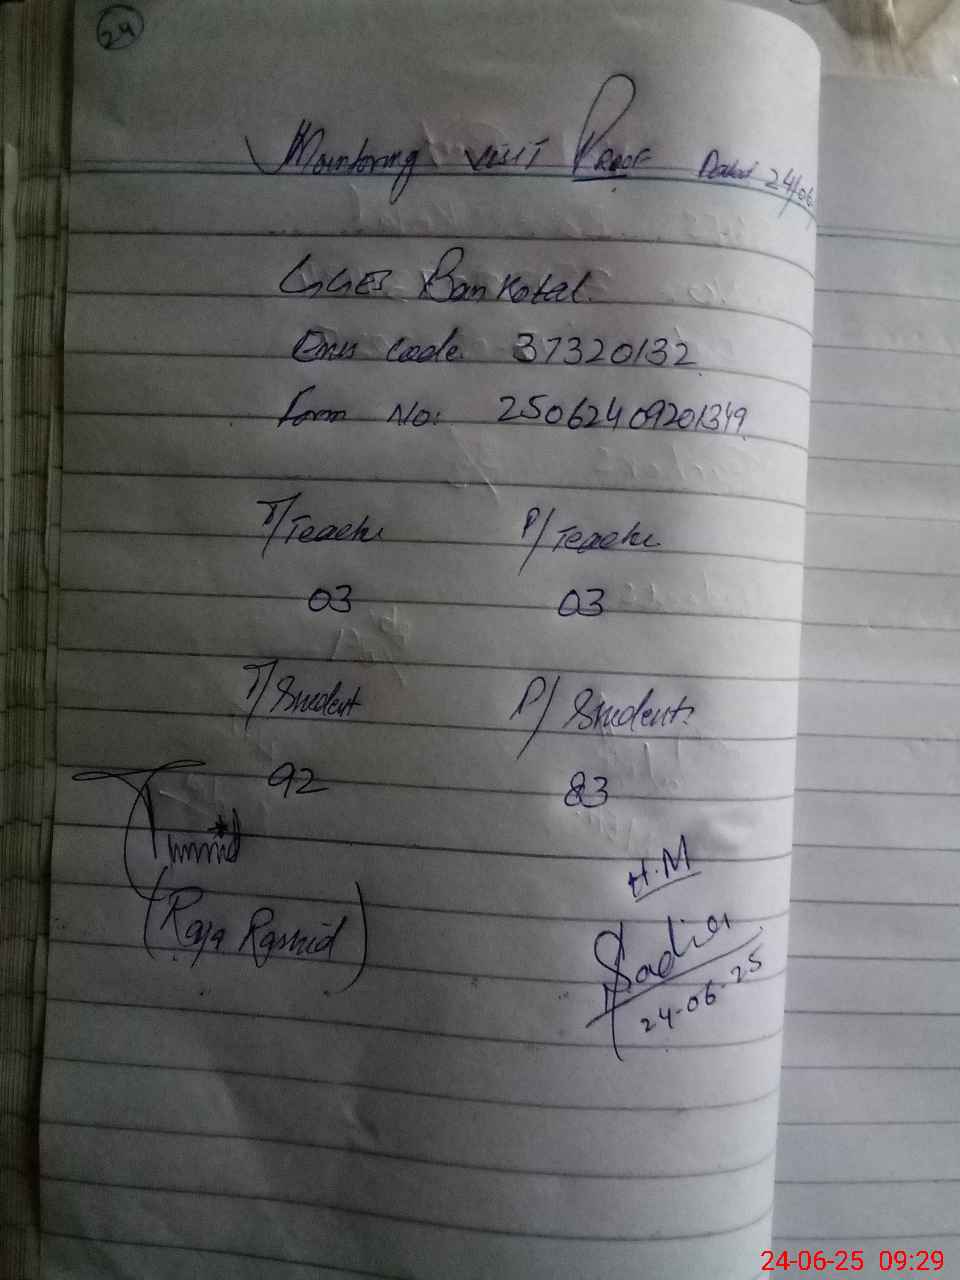 24
Monitoring visit Proof Dated 24/06
GGES Ban Kotal.
Emis Code 37320132
Form No: 25062409201349
T/Teache P/Teache
03 03
T/Student P/Students
92 83
H.M
(Raja Rashid) Sadia
24-06-25
24-06-25 09:29